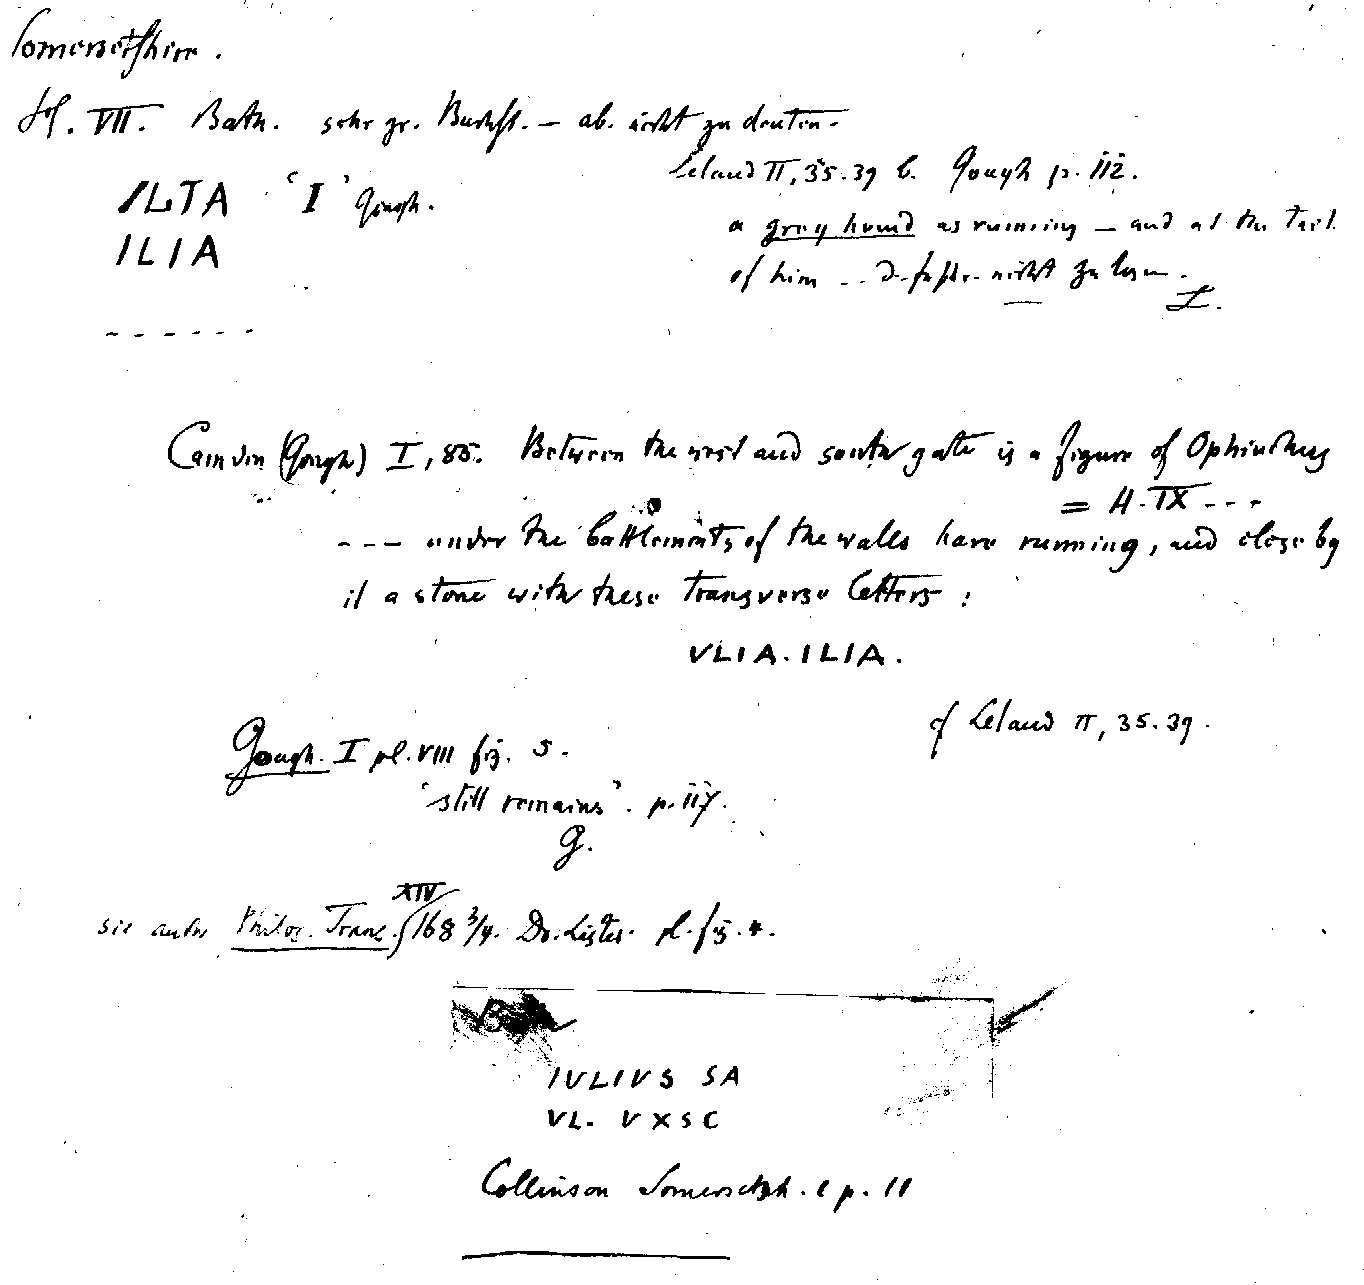 Somersetshire.
H. VII. Bath. sehr gr. Buchst. — ab. nicht zu deuten.
Leland II, 35.39 b. Gough p. 112.
ILTA 'I' Gough.
ILIA
a grey hound as running — and at the tail
of him -- nicht zu lesen.
L.
- - - - - -
Camden (Gough) I, 85. Between the west and south gate is a figure of Ophiuchus
= H. IX - - -
- - - under the battlements of the walls hare running, and close by
it a stone with these transverse letters :
VLIA . ILIA .
cf Leland II, 35.39.
Gough. I pl. VIII fig. 5.
'still remains'. p. 117.
G.
Philos. Trans. XIV 168 3/4. Dr. Lister. pl. fig. 4.
IVLIVS SA
VL. VXSC
Collinson Somersetsh. 1 p. 11